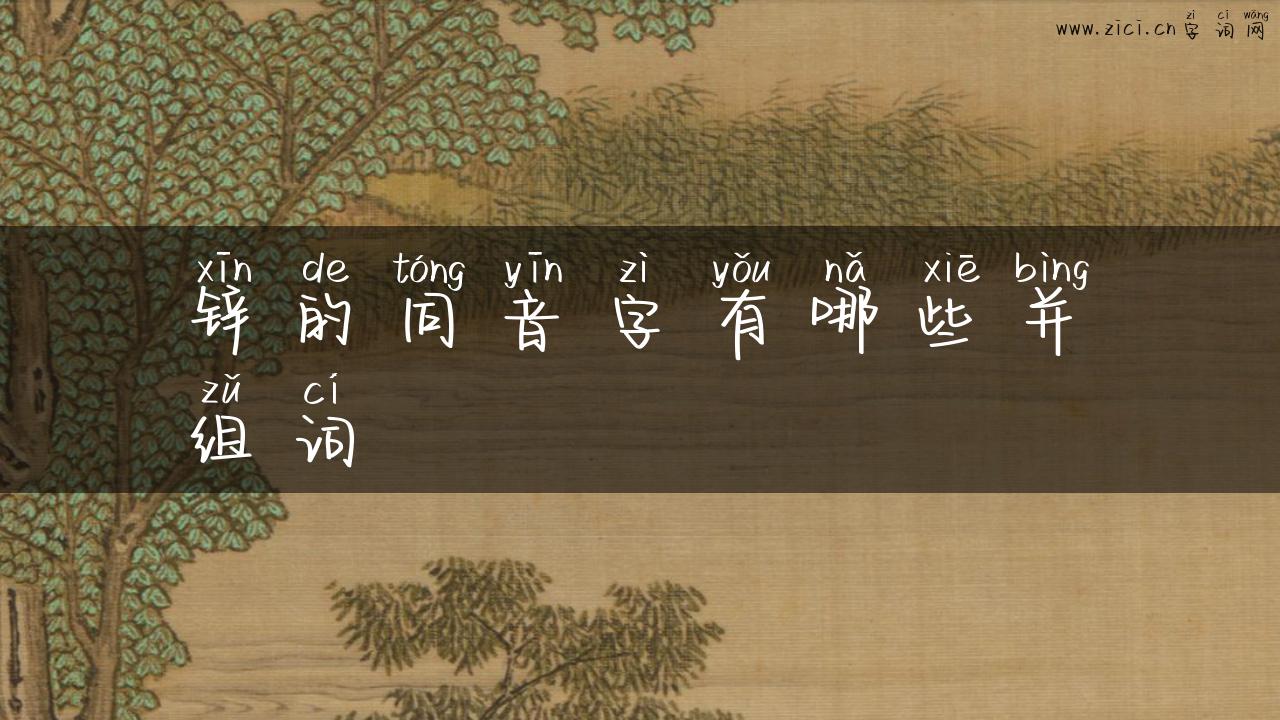 zì cí wǎng
www.zici.cn字词网
xīn de tóng yīn zì yǒu nǎ xiē bìng
锌的同音字有哪些并
zǔ cí
组词